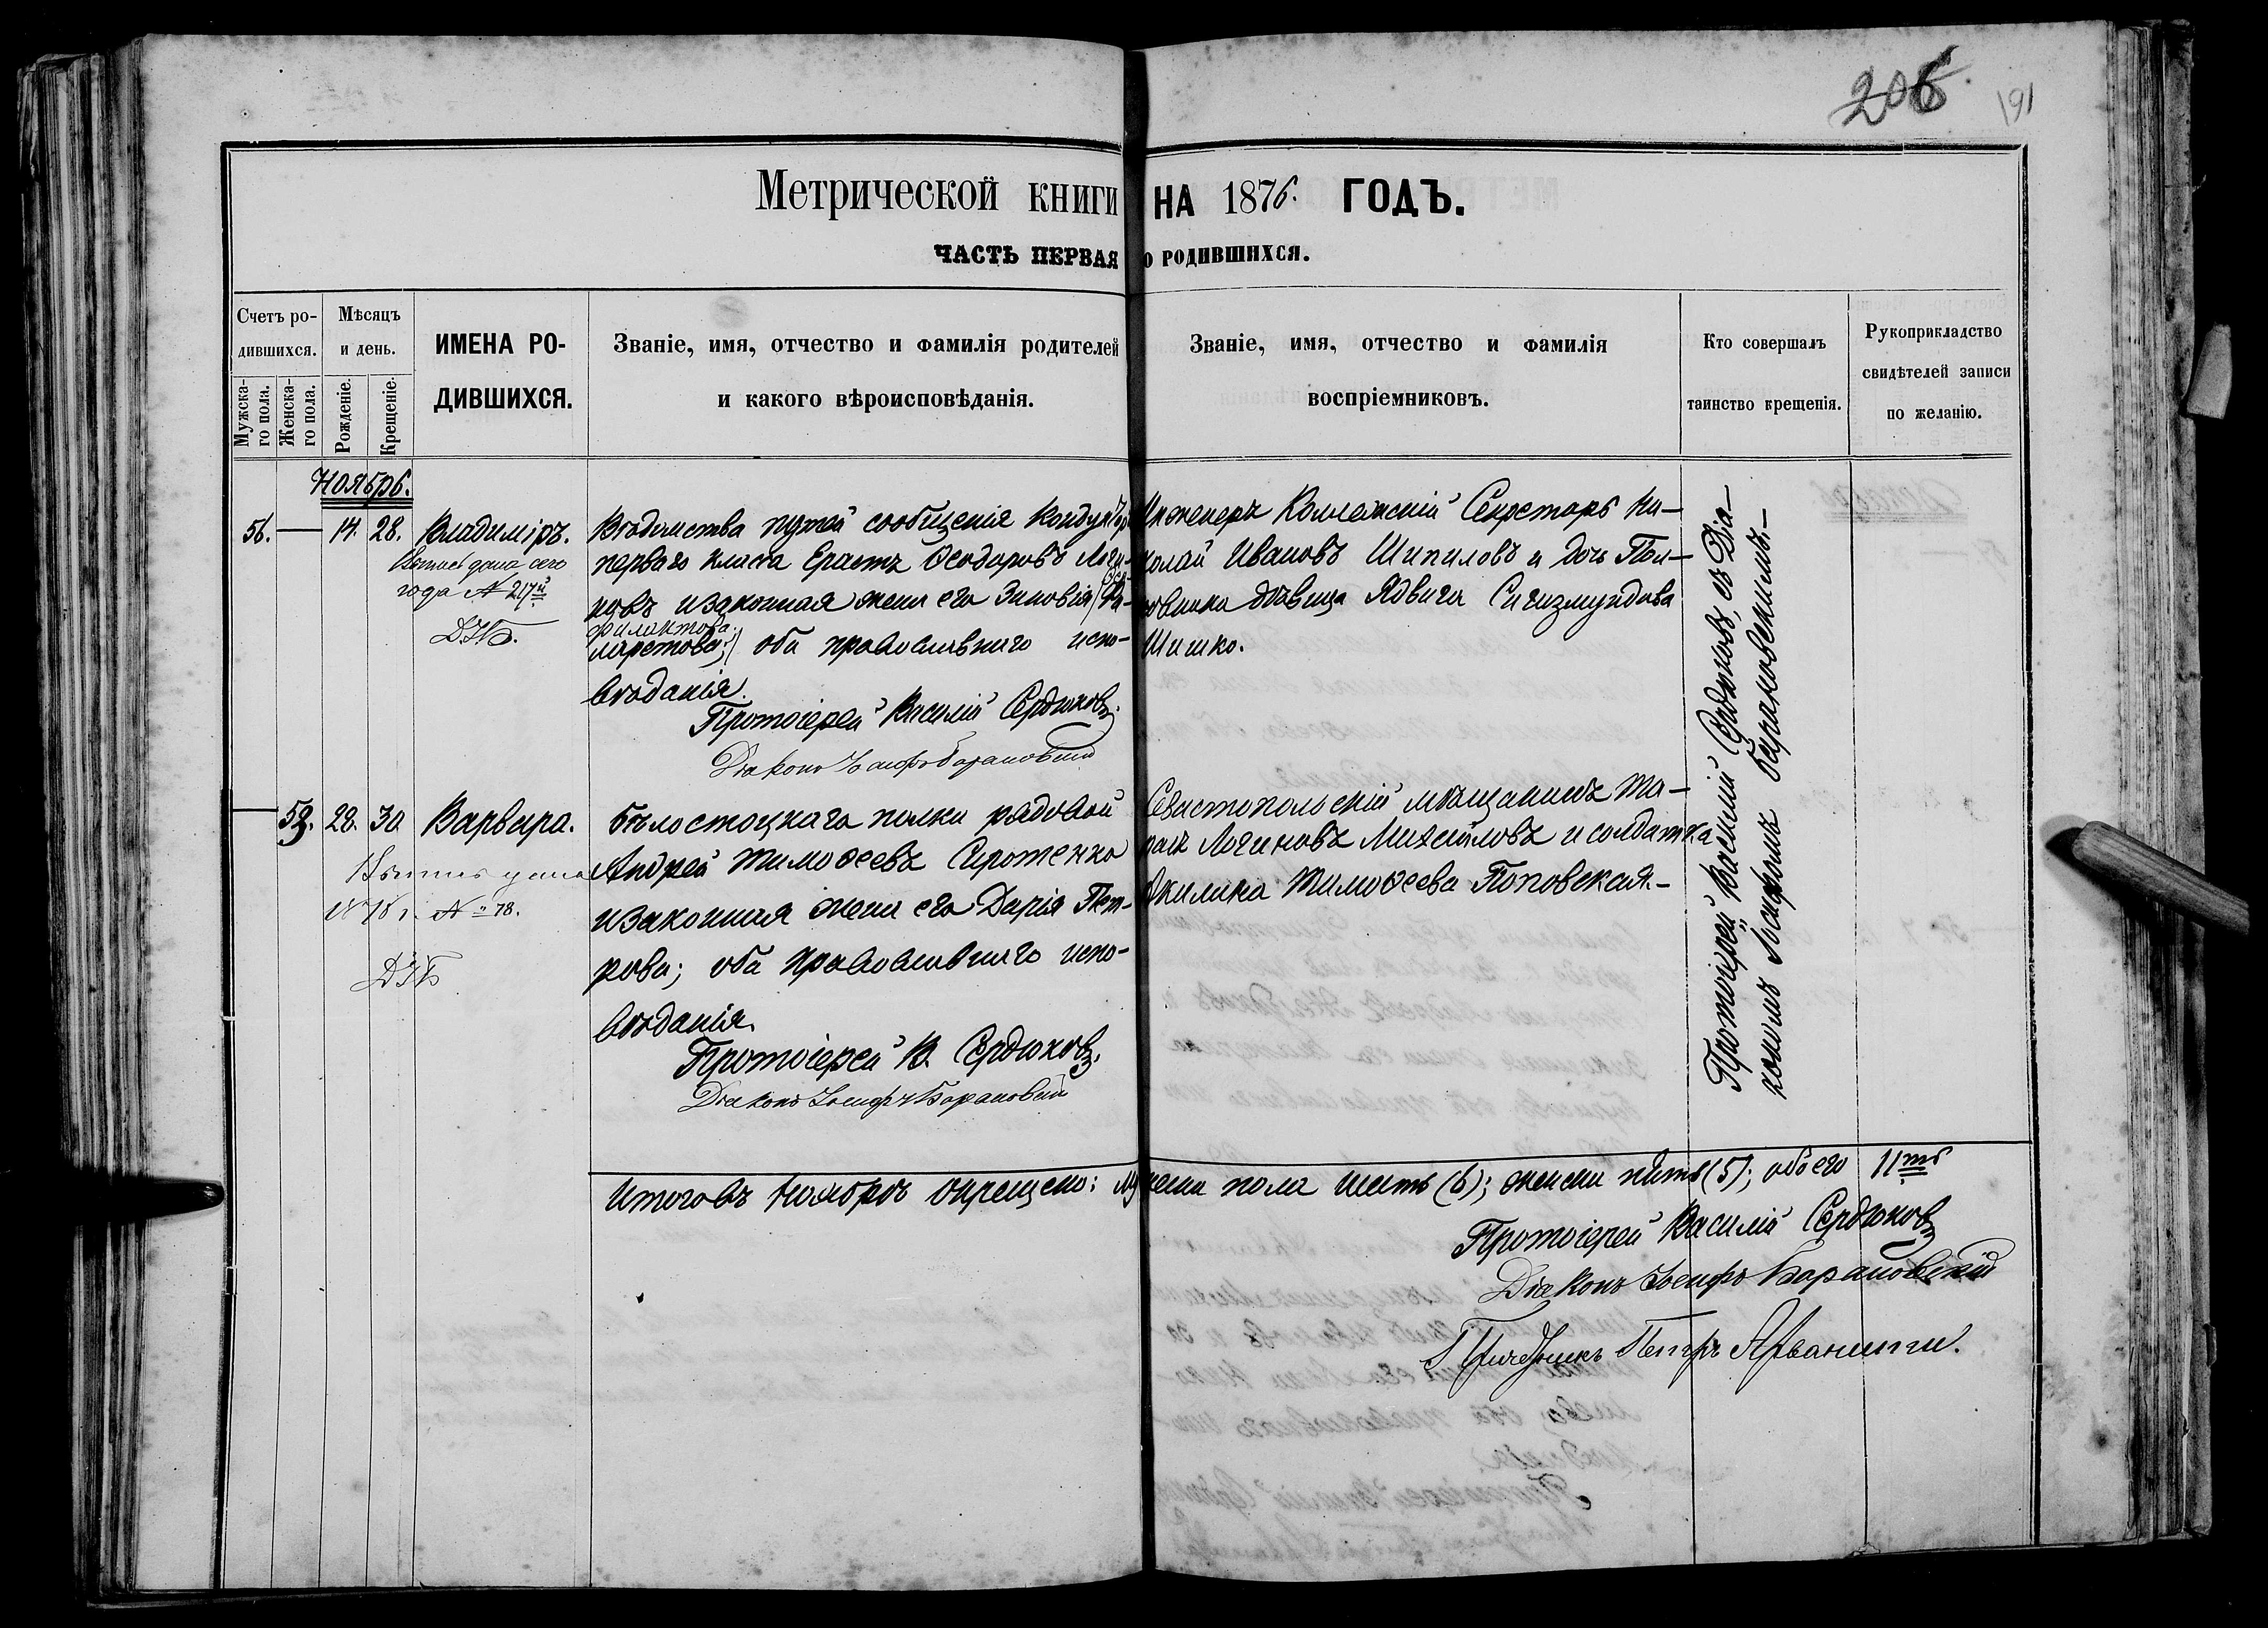 206 191
Метрической книги НА 1876. ГОДЪ.
ЧАСТЬ ПЕРВАЯ О РОДИВШИХСЯ.
Счетъ ро-
дившихся.
Мужска-
го пола.
Женска-
го пола.
Мѣсяцъ
и день.
Рожденіе.
Крещеніе.
ИМЕНА РО-
ДИВШИХСЯ.
Званіе, имя, отчество и фамилія родителей
и какого вѣроисповѣданія.
Званіе, имя, отчество и фамилія
воспріемниковъ.
Кто совершалъ
таинство крещенія.
Рукоприкладство
свидѣтелей записи
по желанію.
Ноябрь.
56. — 14. 28. Владиміръ.
дана сего
года № 217й
Вѣдомства путей сообщенія Кондукторъ
перваго класса Ерастъ Ѳеодоровъ Логи-
новъ и законная жена его Зиновія
филактова
ларетова; оба православнаго испо-
вѣданія.
Протоіерей Василій Сердюковъ.
Діаконъ Іосифъ Барановскій
Инженеръ Коллежскій Секретарь Ни-
колай Ивановъ Шипиловъ и дочь Пол-
ковника дѣвица Ядвига Сигизмундова
Шишко.
— 53. 28. 30 Варвара.
1878 г. № 78.
Бѣлостоцкаго полка рядовой
Андрей Тимоѳеевъ Сиротенко
и законная жена его Дарія Пет-
рова; оба православнаго испо-
вѣданія.
Протоіерей В. Сердюковъ.
Діаконъ Іосифъ Барановскій
Севастопольскій мѣщанинъ Та-
расъ Логиновъ Михайловъ и солдатка
Акилина Тимоѳеева Поповская.—
Протоіерей Василій Сердюковъ, съ Діа-
кономъ Іосифомъ Барановскимъ.—
Итого въ Ноябрѣ окрещено: мужеска пола шесть (6); женска пять (5); обоего 11ть
Протоіерей Василій Сердюковъ
Діаконъ Іосифъ Барановскій
Причетникъ Петръ Арванити.